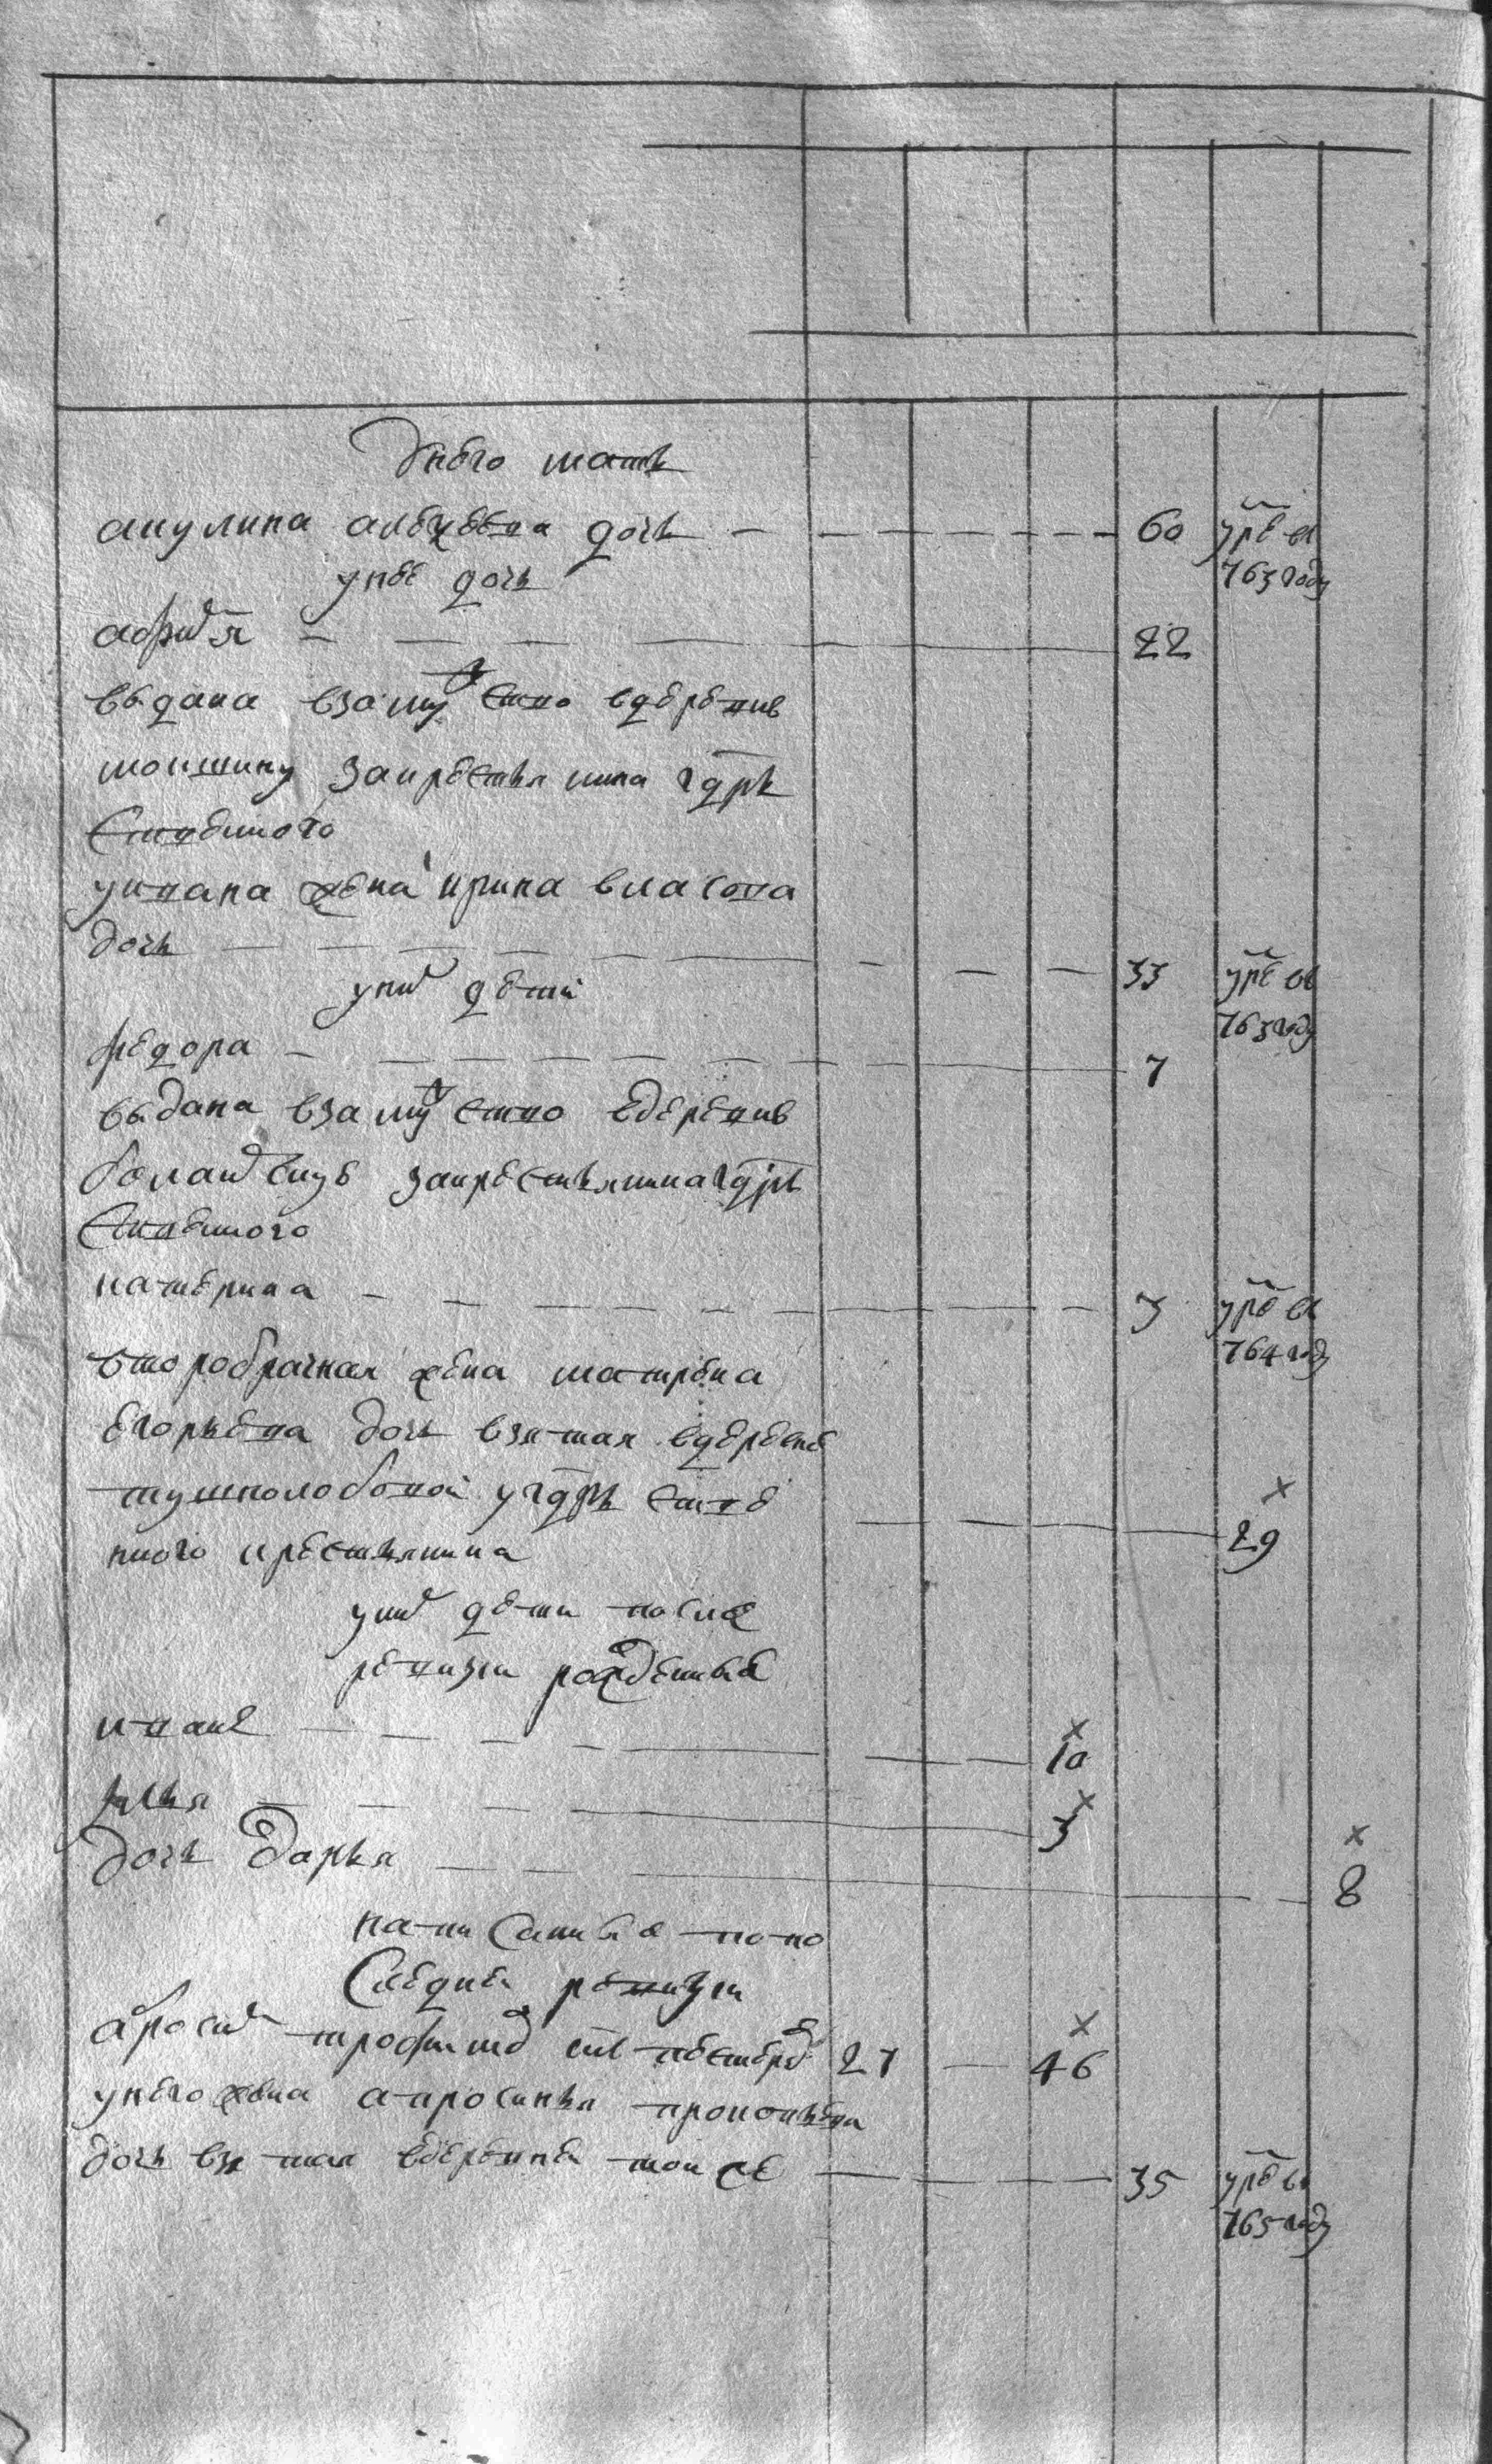 У него мать
акулина алексеевна дочь 60 умре в
763 году
у нее дочь
афимя 22
выдана в замужство в деревню
мокшину за крестьянина г дрь
ственного
у ивана жена ирина власова
дочь 33 умре в
763 году
у них дети
федора 7
выдана в замужство в деревню
за крестьянина г дрь
ственного
катерина 3 умре в
764 году
второбрачная жена матрена
егорьева дочь взятая в деревне
тушнолобовой у г дрь стве
нного крестьянина 29
у них дети после
ревизии рожденные
иван 10
илья 3
дочь дарья 8
написанные по по
следней ревизии
трофимов 27 46
у него жена апросинья прокопьева
дочь взятая в деревне той же 35 умре в
765 году